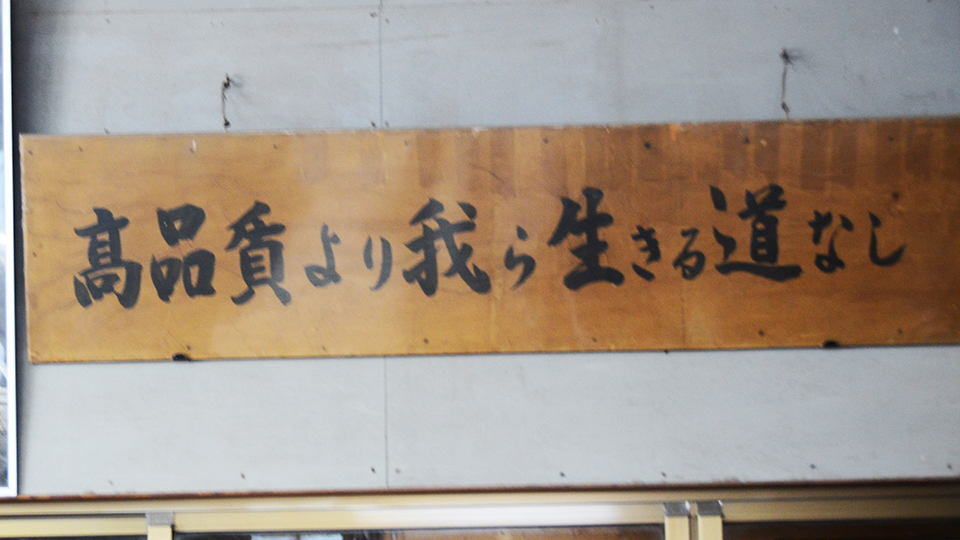 高品質より我ら生きる道なし